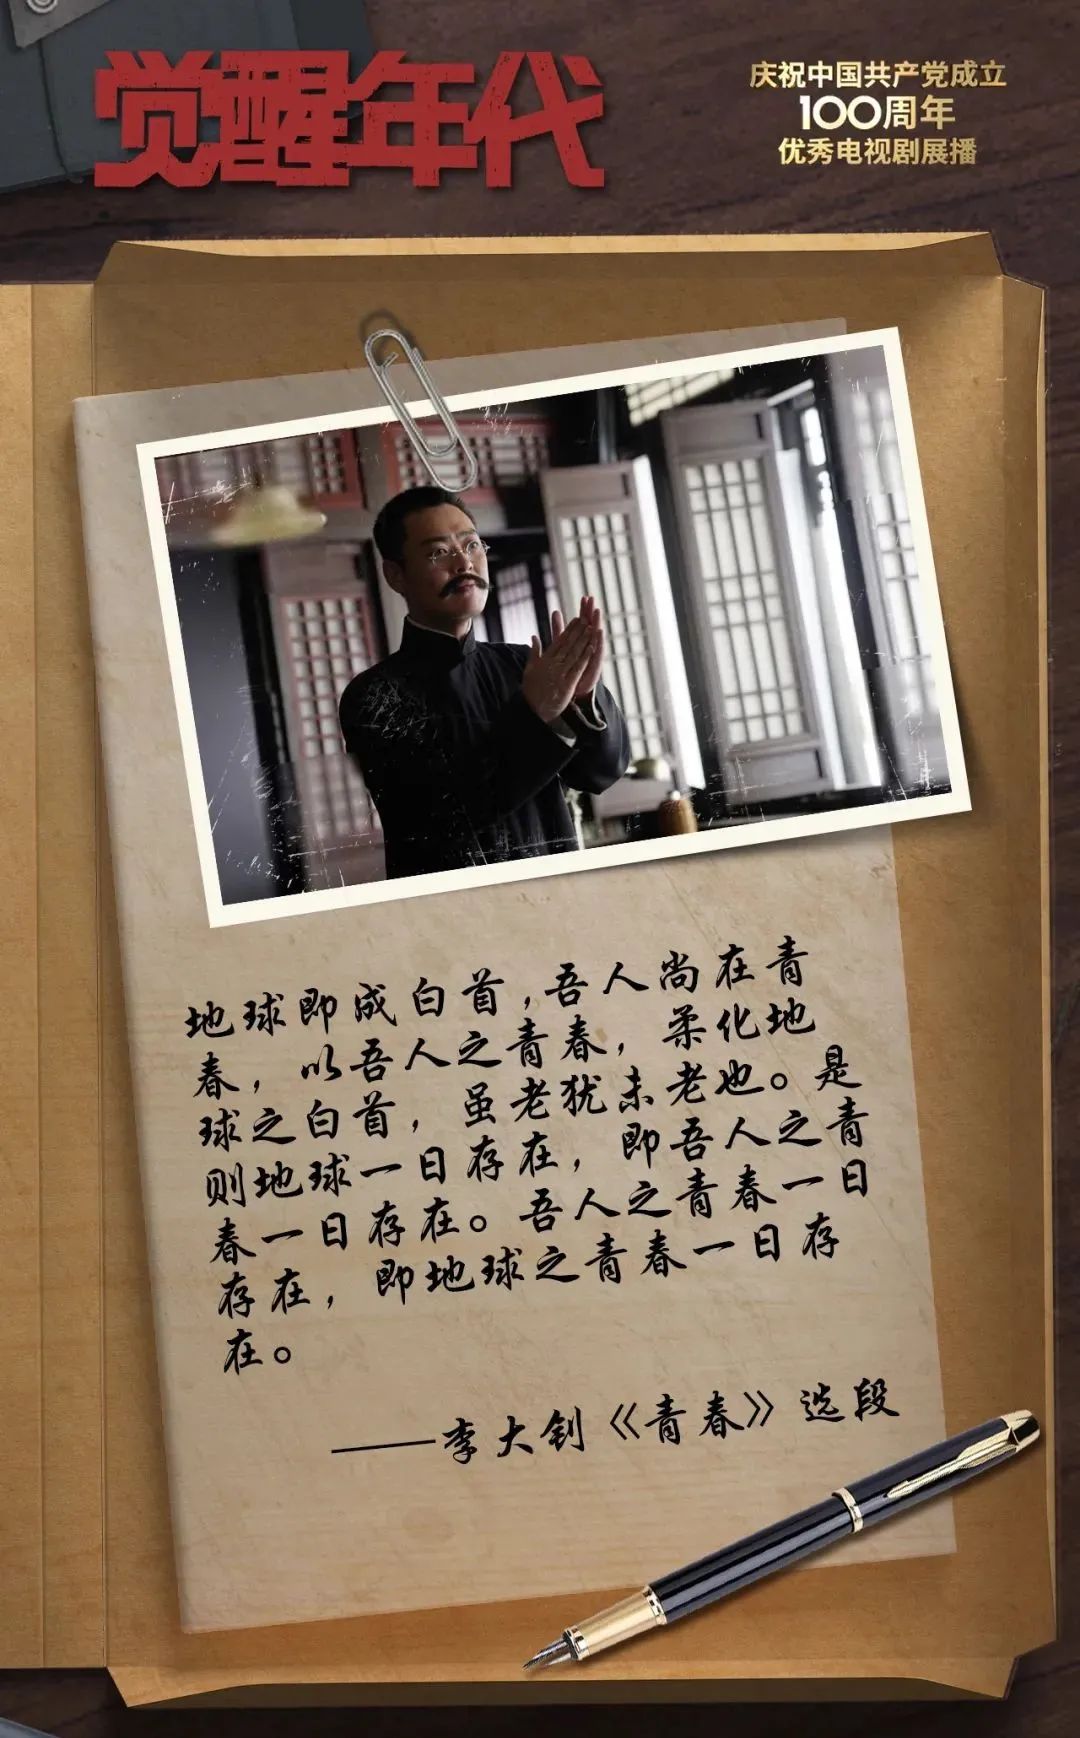 觉醒年代
庆祝中国共产党成立
100周年
优秀电视剧展播
地球即成白首,吾人尚在青
春，以吾人之青春，柔化地
球之白首，虽老犹未老也。是
则地球一日存在，即吾人之青
春一日存在。吾人之青春一日
存在，即地球之青春一日存
在。
——李大钊《青春》选段